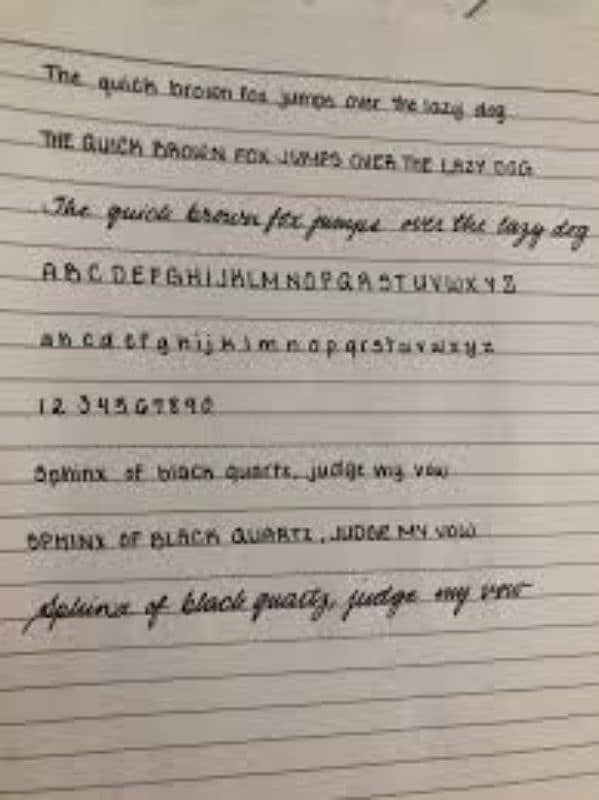 The quick brown fox jumps over the lazy dog
THE QUICK BROWN FOX JUMPS OVER THE LAZY DOG
The quick brown fox jumps over the lazy dog
A B C D E F G H I J K L M N O P Q R S T U V W X Y Z
a b c d e f g h i j k l m n o p q r s t u v w x y z
1 2 3 4 5 6 7 8 9 0
Sphinx of black quartz, judge my vow
SPHINX OF BLACK QUARTZ, JUDGE MY VOW
Sphinx of black quartz, judge my vow